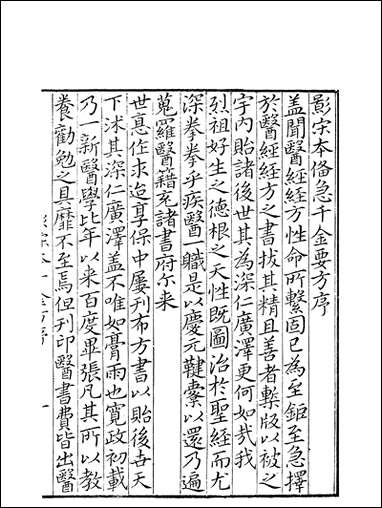 影宋本備急千金要方序
蓋聞醫經經方性命所繫固已為至鉅至急擇
於醫經經方之書拔其精且善者槧版以被之
宇內貽諸後世其為深仁廣澤更何如哉我
烈祖好生之德根之天性既圖治於聖經而尤
深拳拳乎疾醫一職是以慶元鞬櫜以還乃遍
蒐羅醫籍充諸書府尔来
世憙作求迨享保中屢刊布方書以貽後去天
下沭其深仁廣澤盖不唯如膏雨也寬政初載
乃一新醫學比年以来百度畢張凡其所以教
養勸勉之具靡不至焉但刊印醫書費皆出醫
影宋本千金方序 一